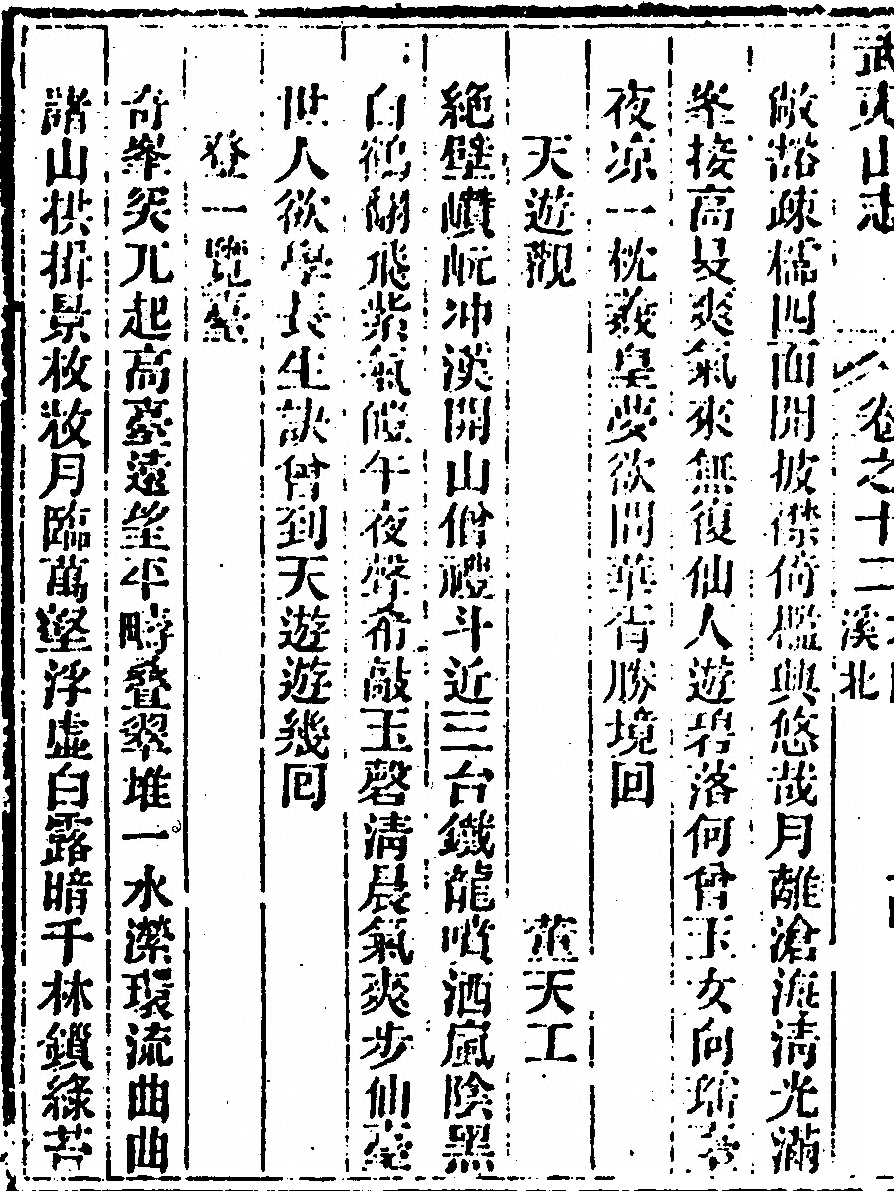 武夷山志 卷之十二 溪北
敞豁疎櫺四面開披襟倚檻興悠哉月離滄海淸光滿
峯接高旻爽氣來無復仙人遊碧落何曾玉女向瑤臺
夜凉一枕羲皇夢欲問華胥勝境回
天遊觀 董天工
絶壁巑岏冲漢開山僧禮斗近三台鐵龍噴洒嵐陰黑
白鶴翩飛紫氣皚午夜聲希敲玉磬淸晨氣爽步仙臺
世人欲學長生訣曾到天遊遊幾回
登一覽臺
奇峯突兀起高臺遠望平疇叠翠堆一水瀠環流曲曲
諸山栱揖景枚枚月臨萬壑浮虛白露暗千林鎖綠苔